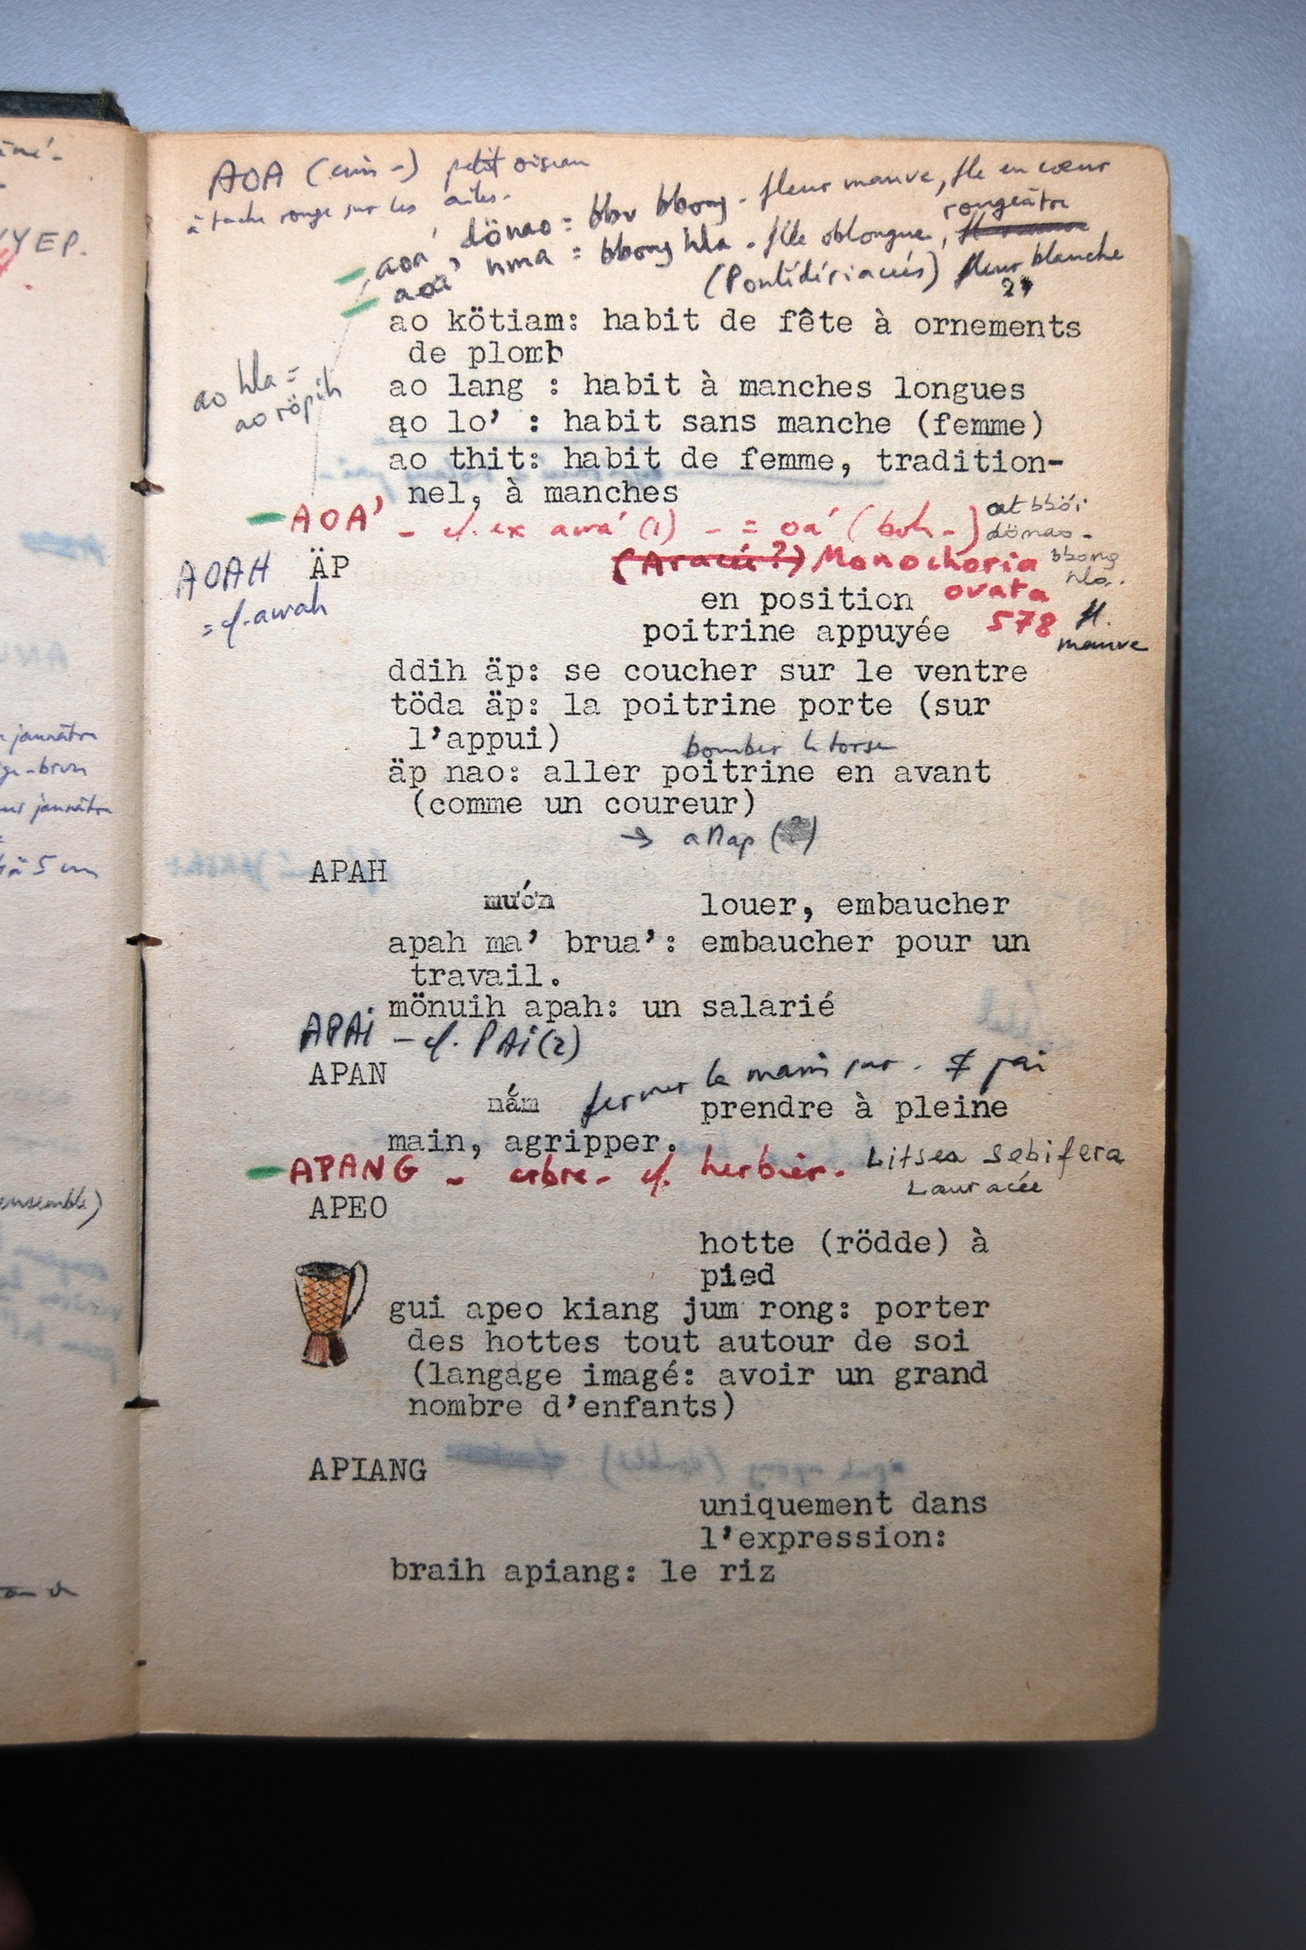 AOA (cim -) petit oiseau
à tache rouge sur les ailes.
aoa', dönao = bbv bbong - fleur mauve, flle en cœur
aoa' nma = bbong hla - flle oblongue, rougeâtre
(Pontédériacées) fleur blanche
ao kötiam: habit de fête à ornements
de plomb
ao hla =
ao röpih
ao lang : habit à manches longues
ao lo' : habit sans manche (femme)
ao thit: habit de femme, tradition-
nel, à manches
AOA' - cf. ex awa' (1) - = oa' (boh -)
at bböi
dönao -
bbong
hla.
fl.
mauve
AOAH
= cf. awah
ÄP
(Aracée?) Monochoria
ovata
578
en position
poitrine appuyée
ddih äp: se coucher sur le ventre
töda äp: la poitrine porte (sur
l'appui)
bomber le torse
äp nao: aller poitrine en avant
(comme un coureur)
→ anap (?)
APAH
mướn louer, embaucher
apah ma' brua': embaucher pour un
travail.
mönuih apah: un salarié
APAi - cf. PAi (2)
APAN
fermer la main sur . ≠ pai
nắm prendre à pleine
main, agripper.
APANG - arbre - cf. herbier. Litsea sebifera
Lauracée
APEO
hotte (rödde) à
pied
gui apeo kiang jum rong: porter
des hottes tout autour de soi
(langage imagé: avoir un grand
nombre d'enfants)
APIANG
uniquement dans
l'expression:
braih apiang: le riz